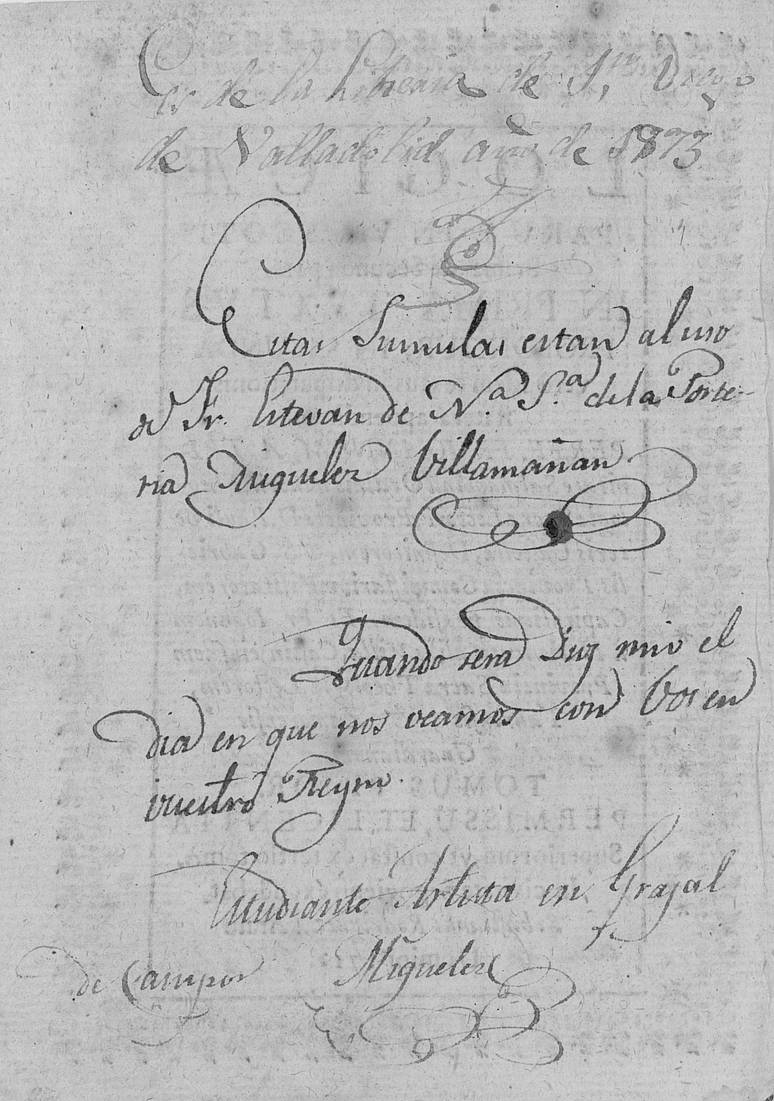 Es de la libreria de Sn. Diego
de Valladolid año de 1873
Estas Sumulas estan al uso
de Fr. Estevan de N.a S.a de la Porte-
ria Miguelez Villamañan
Quando sera Dios mio el
dia en que nos veamos con Vos en
vuestro Reyno.
Estudiante Artista en Grajal
de Campos Miguelez